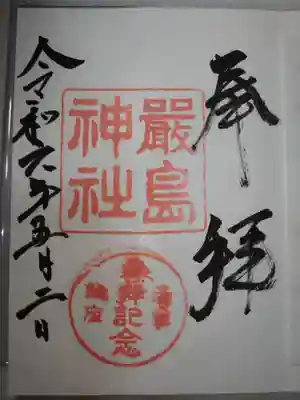 奉拝
嚴島
神社
參拜記念
令和六年五月二日